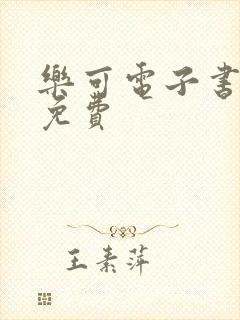 樂可電子書
免費
王素萍